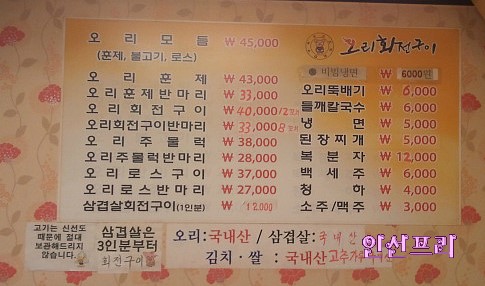 오리모듬 ₩ 45,000
(훈제, 불고기, 로스)
오리훈제 ₩ 43,000
오리훈제반마리 ₩ 33,000
오리회전구이 ₩ 40,000
오리회전구이반마리 ₩ 33,000
오리주물럭 ₩ 38,000
오리주물럭반마리 ₩ 28,000
오리로스구이 ₩ 37,000
오리로스반마리 ₩ 27,000
삼겹살회전구이(1인분) ₩ 12000
오리회전구이
비빔냉면 ₩ 6000원
오리뚝배기 ₩ 6,000
들깨칼국수 ₩ 6,000
냉면 ₩ 5,000
된장찌개 ₩ 5,000
복분자 ₩ 12,000
백세주 ₩ 6,000
청하 ₩ 4,000
소주/맥주 ₩ 3,000
고기는 신선도
때문에 절대
보관해드리지
않습니다.
삼겹살은
3인분부터
회전구이
오리:국내산 / 삼겹살:국내산
김치·쌀 : 국내산 고추가루
안산프라